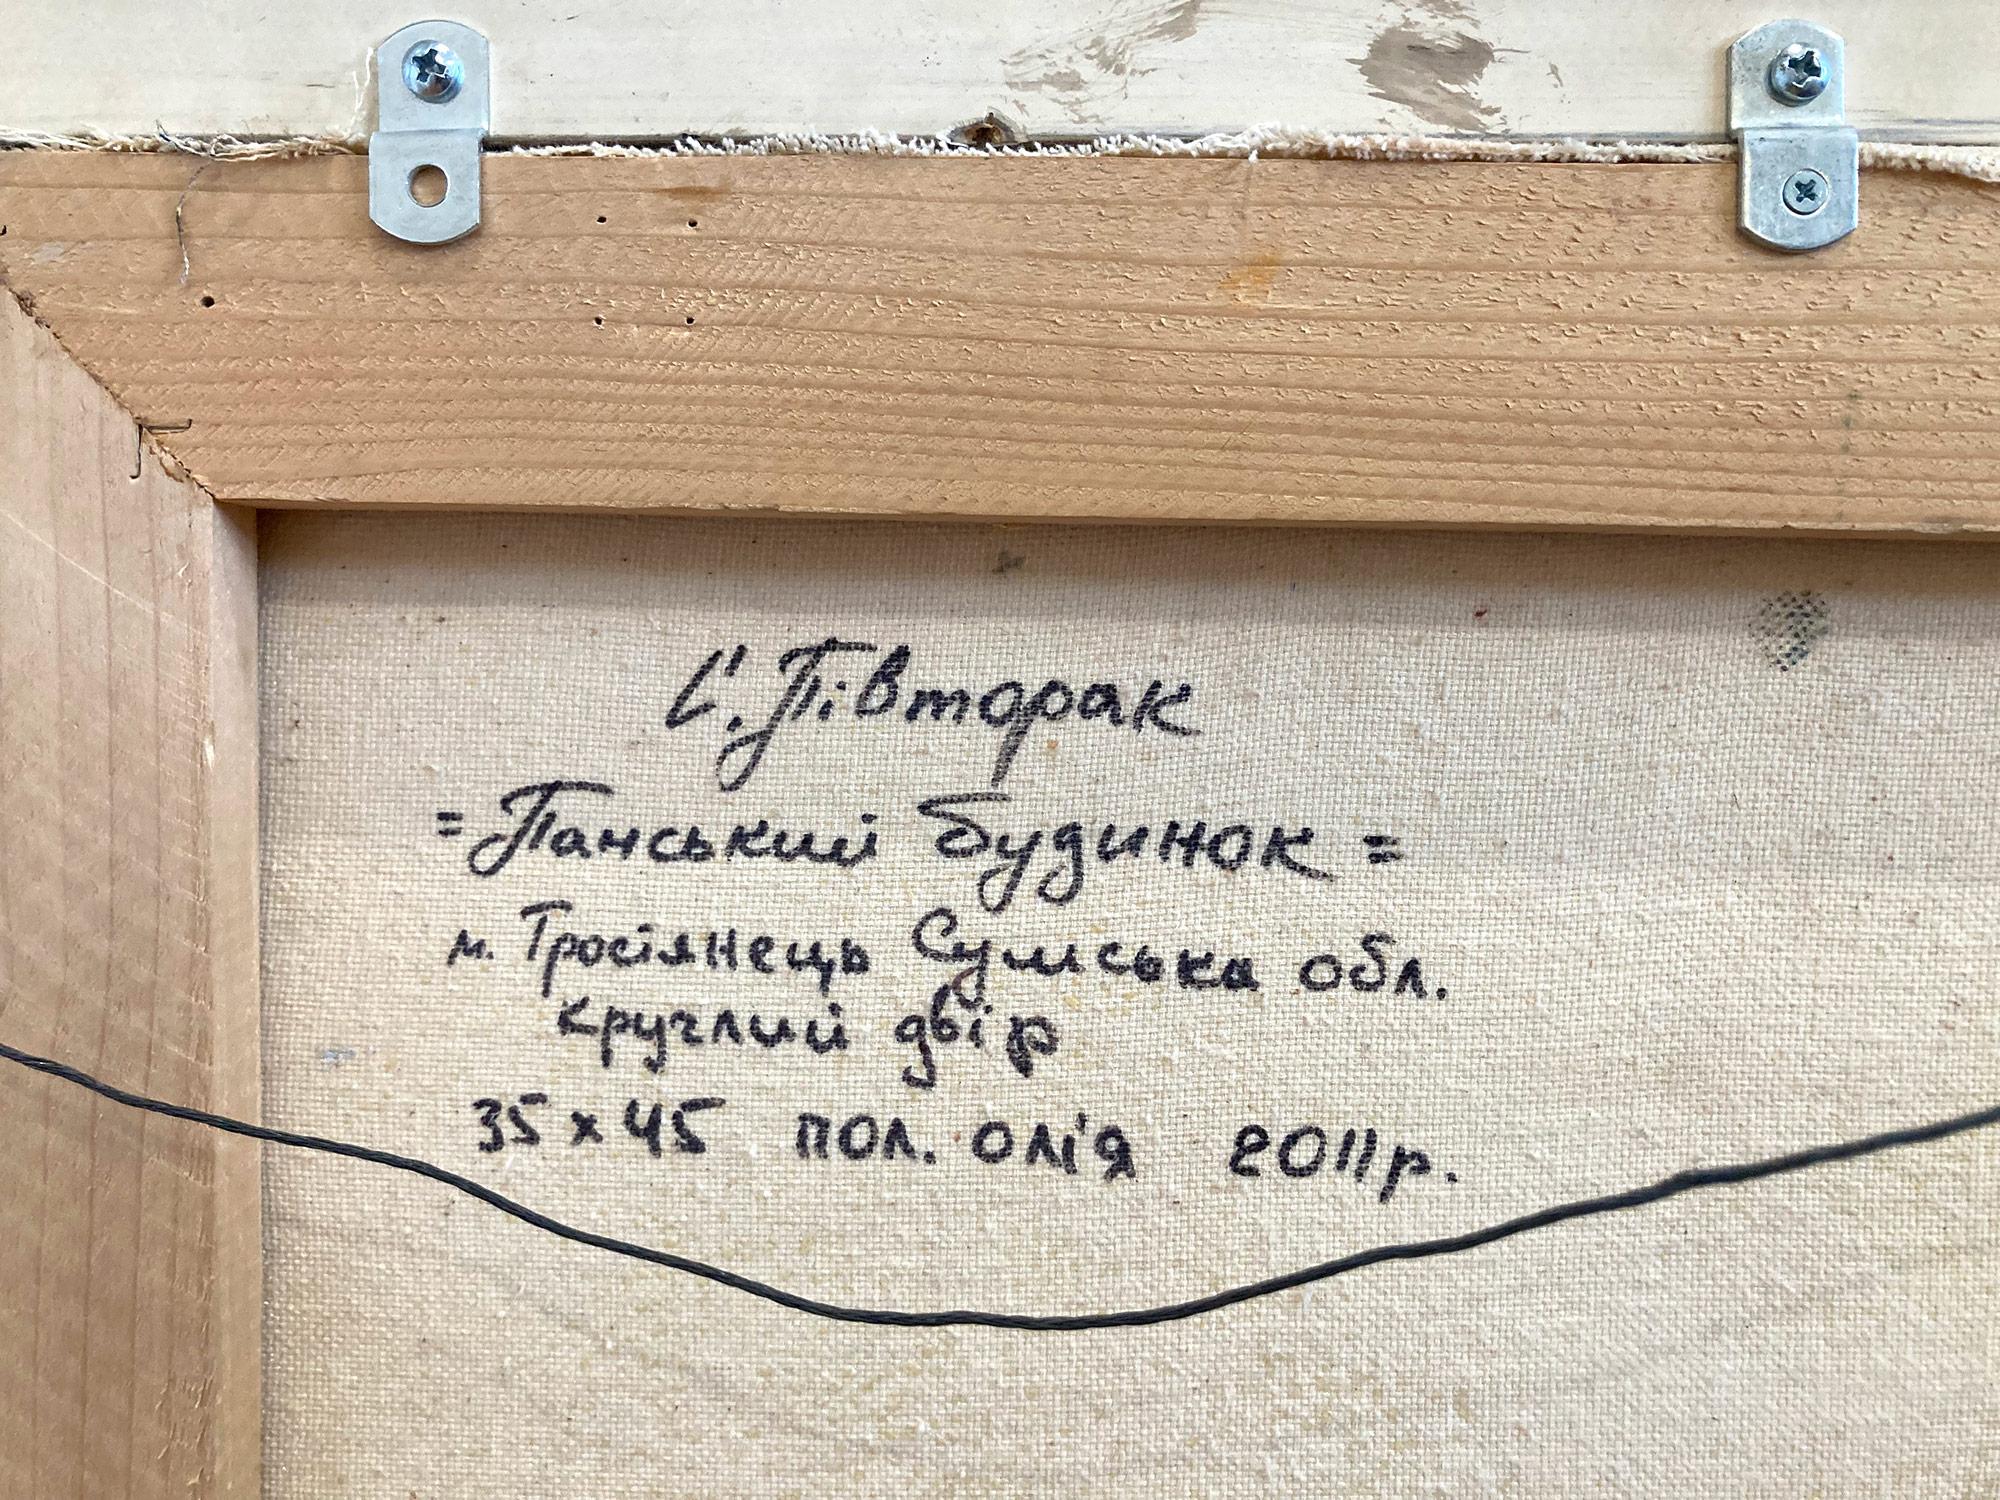 С. Півторак
= Панський будинок =
м. Тросіянець Сумська обл.
круглий двір
35 х 45 пол. олія 2011р.